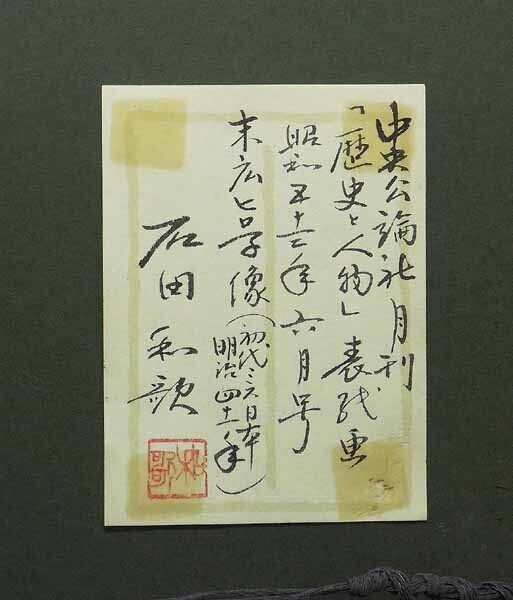 中央公論社月刊
「歴史と人物」表紙画
昭和五十三年六月号
末広ヒロ子像(初代ミス日本
明治四十一年)
石田和歌
和歌